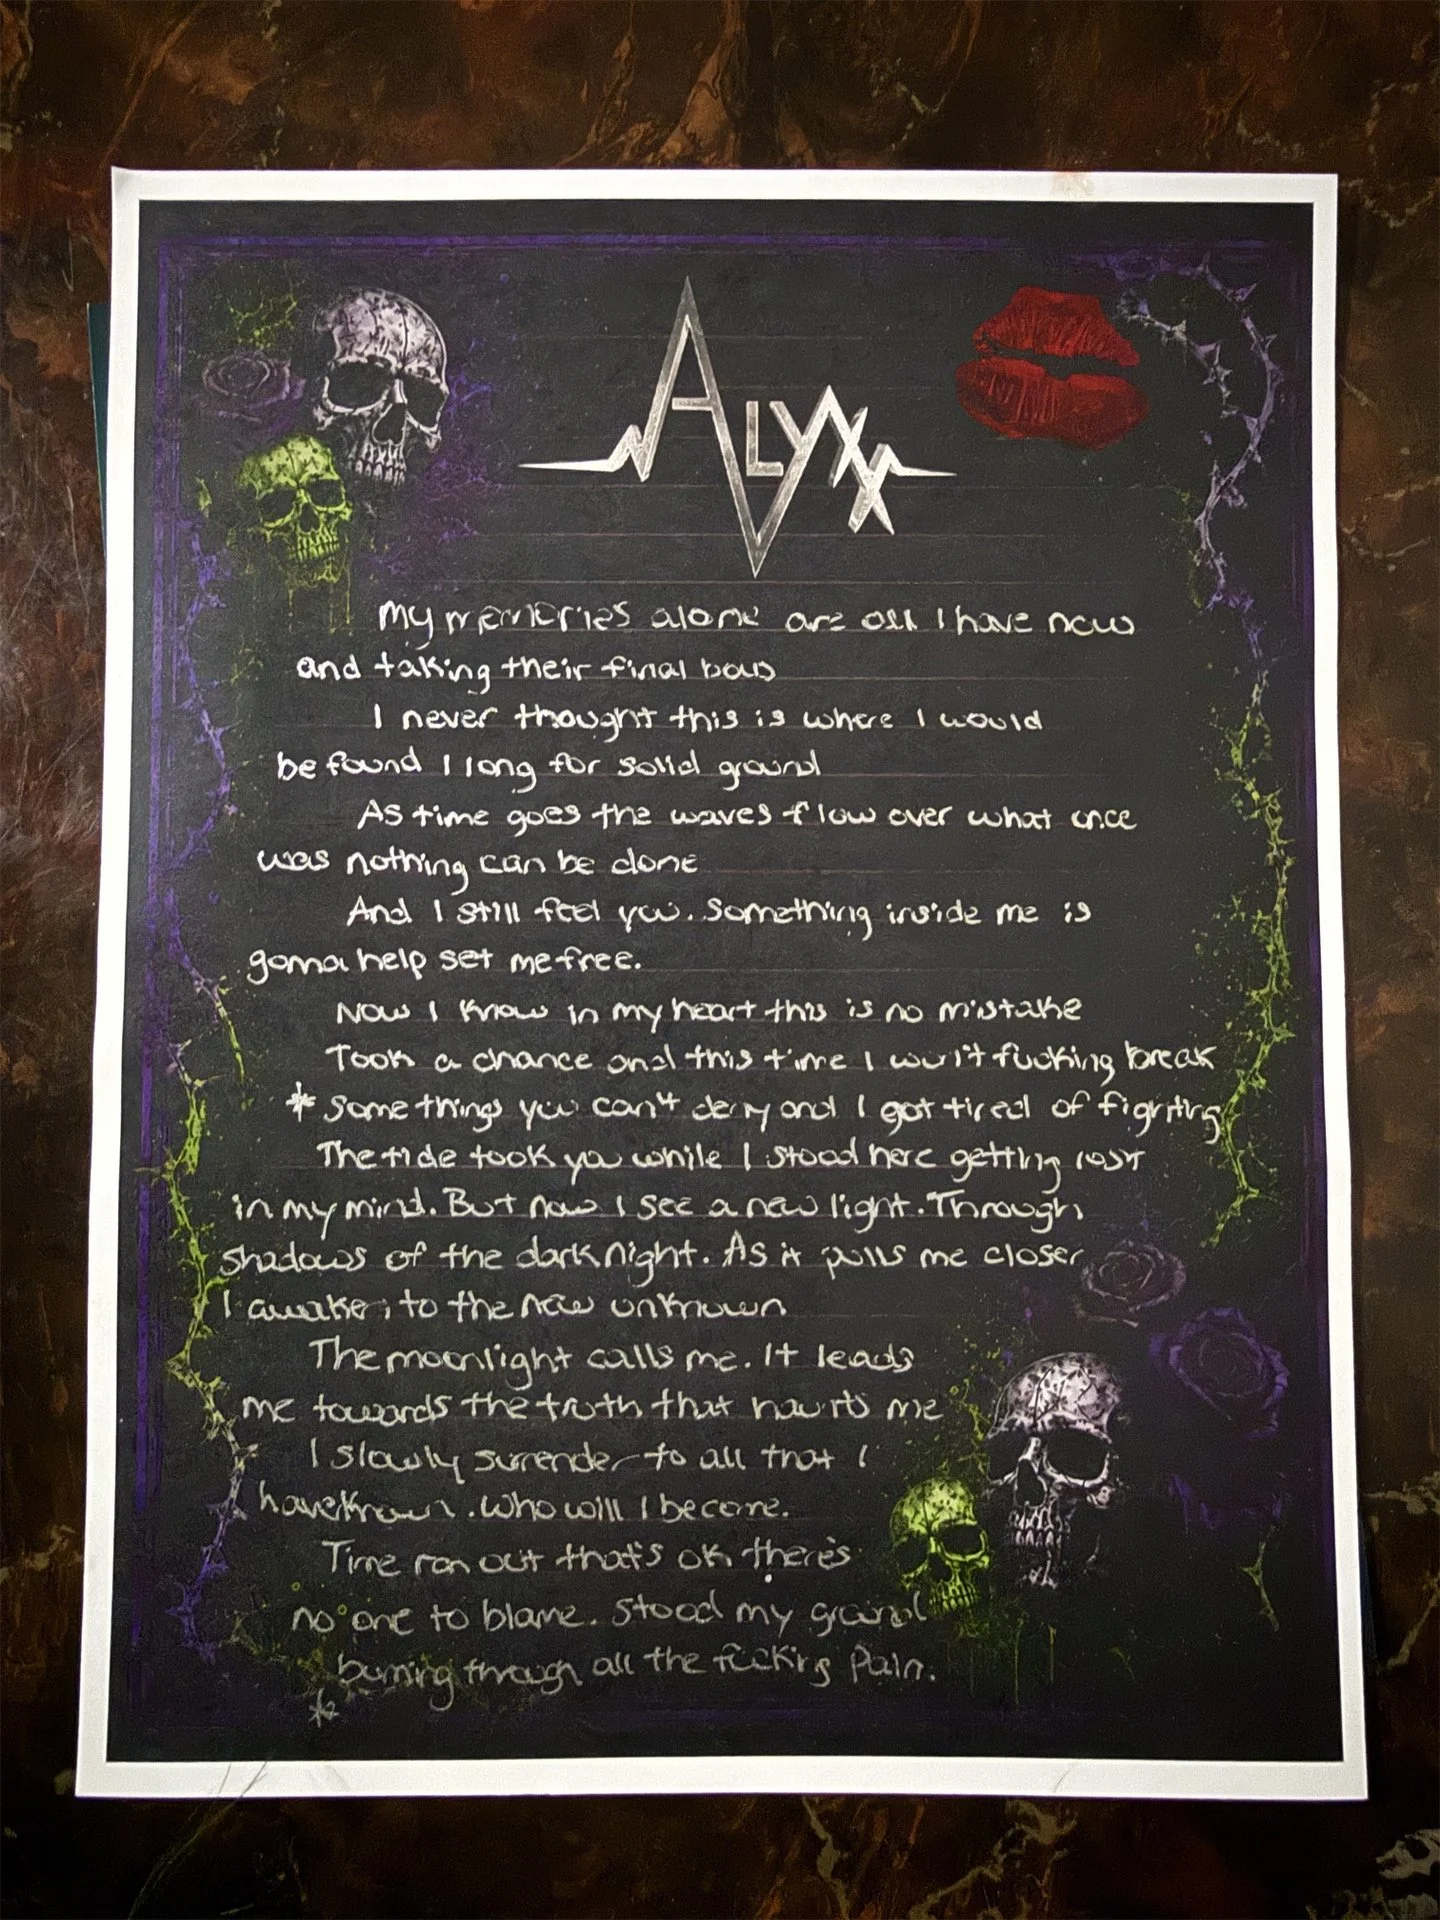 ALYXX
My memories alone are all I have now
and taking their final bow
I never thought this is where I would
be found I long for solid ground
As time goes the waves flow over what once
was nothing can be done
And I still feel you. Something inside me is
gonna help set me free.
Now I know in my heart this is no mistake
Took a chance and this time I won't fucking break
* Some things you can't deny and I got tired of fighting
The tide took you while I stood here getting lost
in my mind. But now I see a new light. Through
shadows of the dark night. As it pulls me closer
I awaken to the new unknown
The moonlight calls me. It leads
me towards the truth that haunts me
I slowly surrender to all that I
have known. Who will I become.
Time ran out that's ok there's
no one to blame. Stood my ground
burning through all the fucking pain.
*